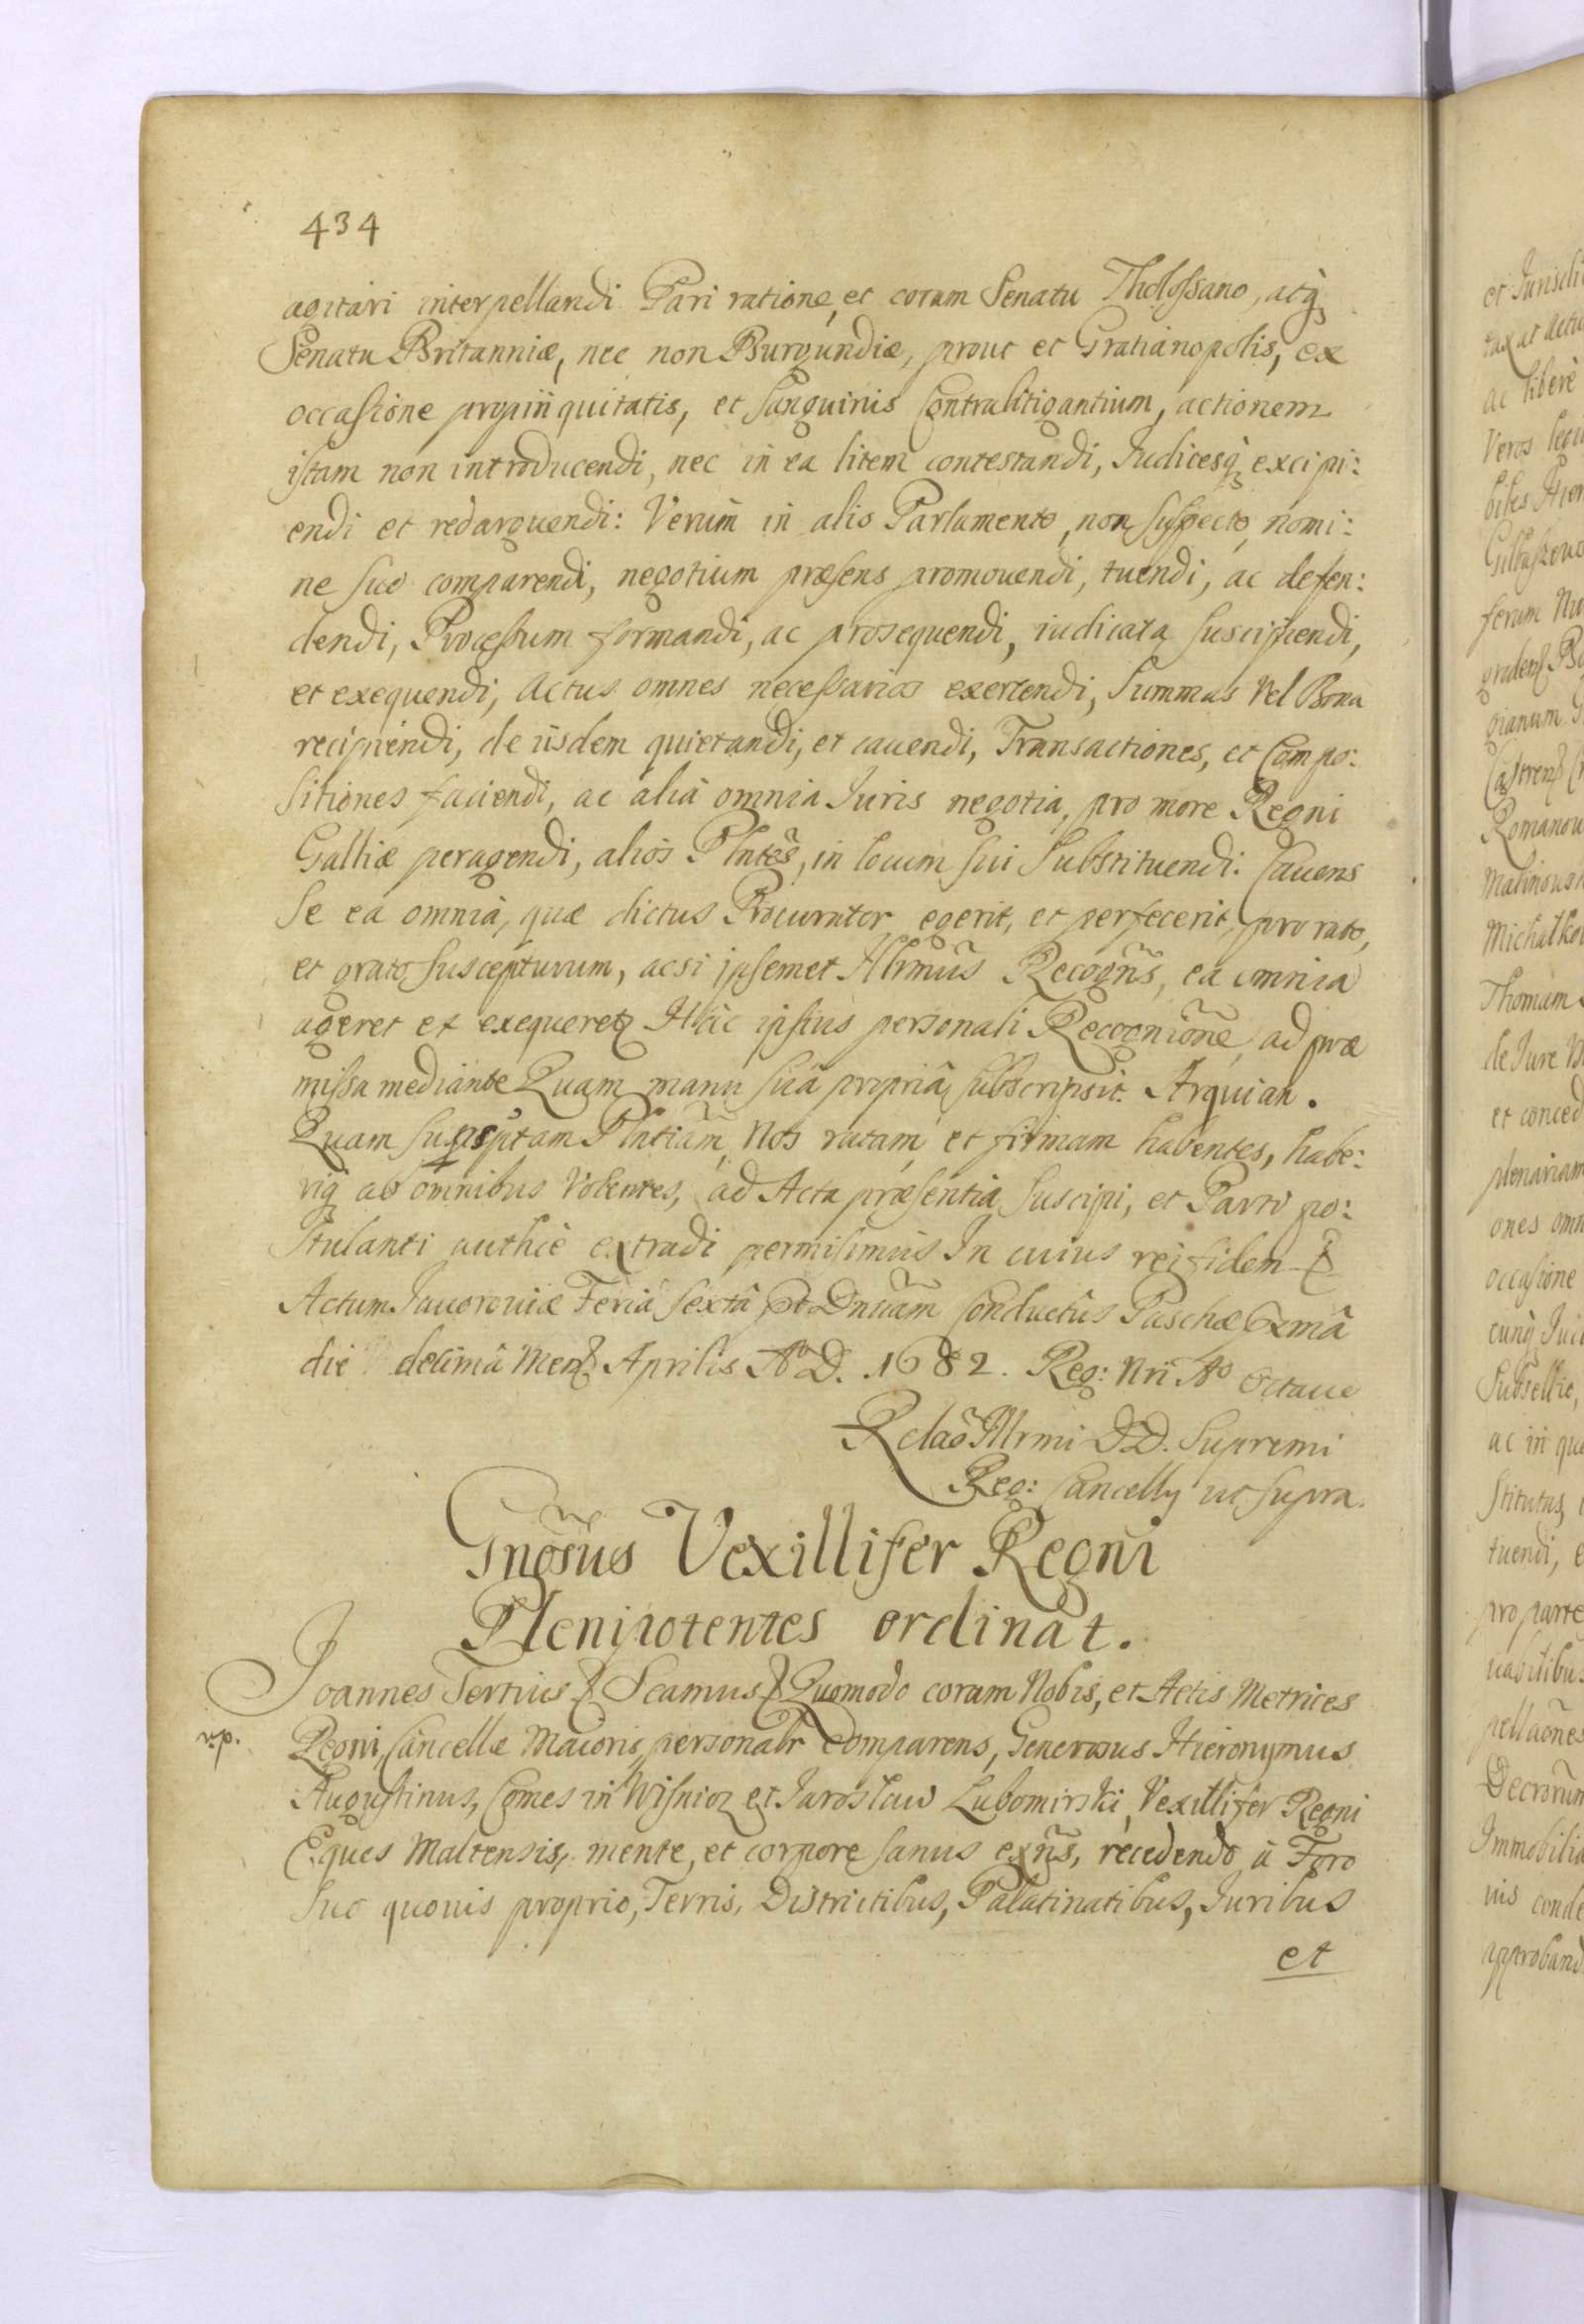 434
agitari interpellandi Pari ratione, et coram Senatu Tholossano, atq̷
Senatu Britanniæ, nec non Burgundiæ, prout et Gratianopolis, ex
occasione propinquitatis, et Sanguinis Contralitigantium, actionem
istam non introducendi, nec in ea litem contestandi, Iudicesq̷ excipi:
endi et redarguendi: Verum in alio Parlamento, non suspecto, nomi:
ne suo comparendi, negotium præsens promovendi, tuendi, ac defen:
dendi, Processum formandi, ac prosequendi, iudicata suscipiendi,
et exequendi, Actus omnes necessarios exercendi, Summas vel Bona
recipiendi, de iisdem quietandi, et cavendi, Transactiones, et Compo:
sitiones faciendi, ac alia omnia Iuris negotia, pro more Regni
Galliæ peragendi, alios Plntes, in locum sui Substituendi. Cavens
se ea omnia, quæ dictus Procurator egerit, et perfecerit, pro rato,
et grato suscepturum, acsi ipsemet Illrmus Recogñs, ea omnia
ageret et exequeretz Hac ipsius personali Recognione, ad præ
missa mediante Quam manu suâ propriâ, subscripsit. Arquian.
Plntiam, Nos ratam et firmam habentes, habe:
riq̷ ab omnibus volentes, ad Acta præsentia Suscipi, et Parti po:
stulanti authce extradi permisimus In cuius rei fidem
Actum Iavoroviæ Feria sextâ pt Dnicam Conductûs Paschæ
die decimâ Mens Aprilis Ao D. 1682. Reg: Nri Ao Octavo
Relao Illrmi DD. Supremi
Reg: Cancelly ut supra.
Gnosus Vexillifer Regni
Plenipotentes ordinat.
Ioannes Tertius Scamus Quomodo coram Nobis, et Actis Metrices
Regni, Cancellæ Maioris, personalr Comparens, Generosus Hieronymus
Augustinus, Comes in Wisnicz et Iaroslaw Lubomirski Vexillifer Regni
Eques Maltensis, mente, et corpore sanus exñs, recedendo à Foro
suo quovis proprio, Terris, Districtibus, Palatinatibus, Iuribus
et